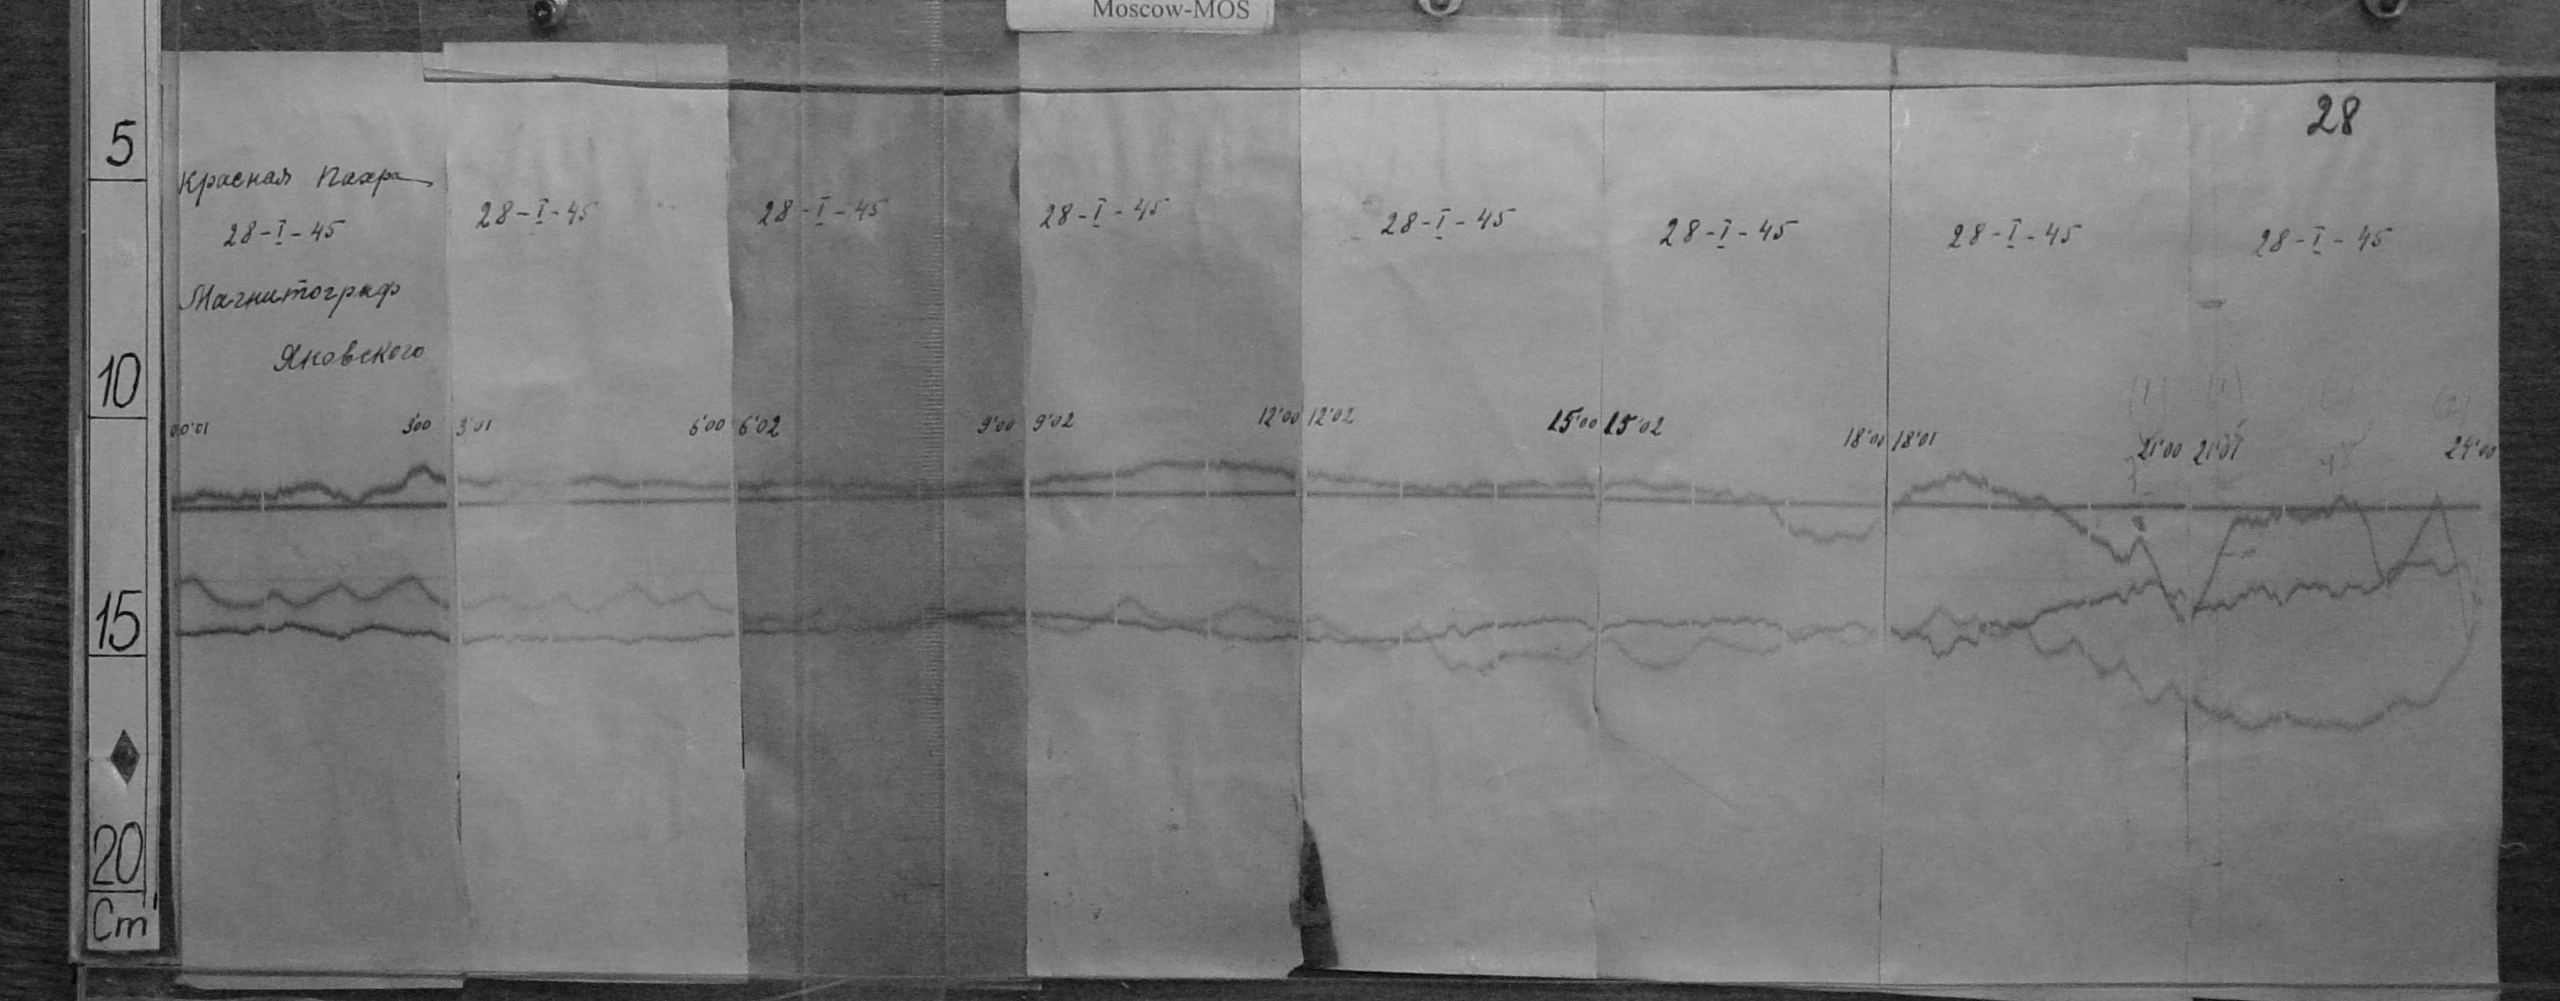 Moscow-MOS
5
10
15
20
Cm
28
Красная Пахра
28-I-45
Магнитограф
Яновского
28-I-45
28-I-45
28-I-45
28-I-45
28-I-45
28-I-45
28-I-45
00'01
3'00
3'01
6'00
6'02
9'00
9'02
12'00
12'02
15'00
15'02
18'00
18'01
21'00
21'01
24'00
(1)
(1)
(2)